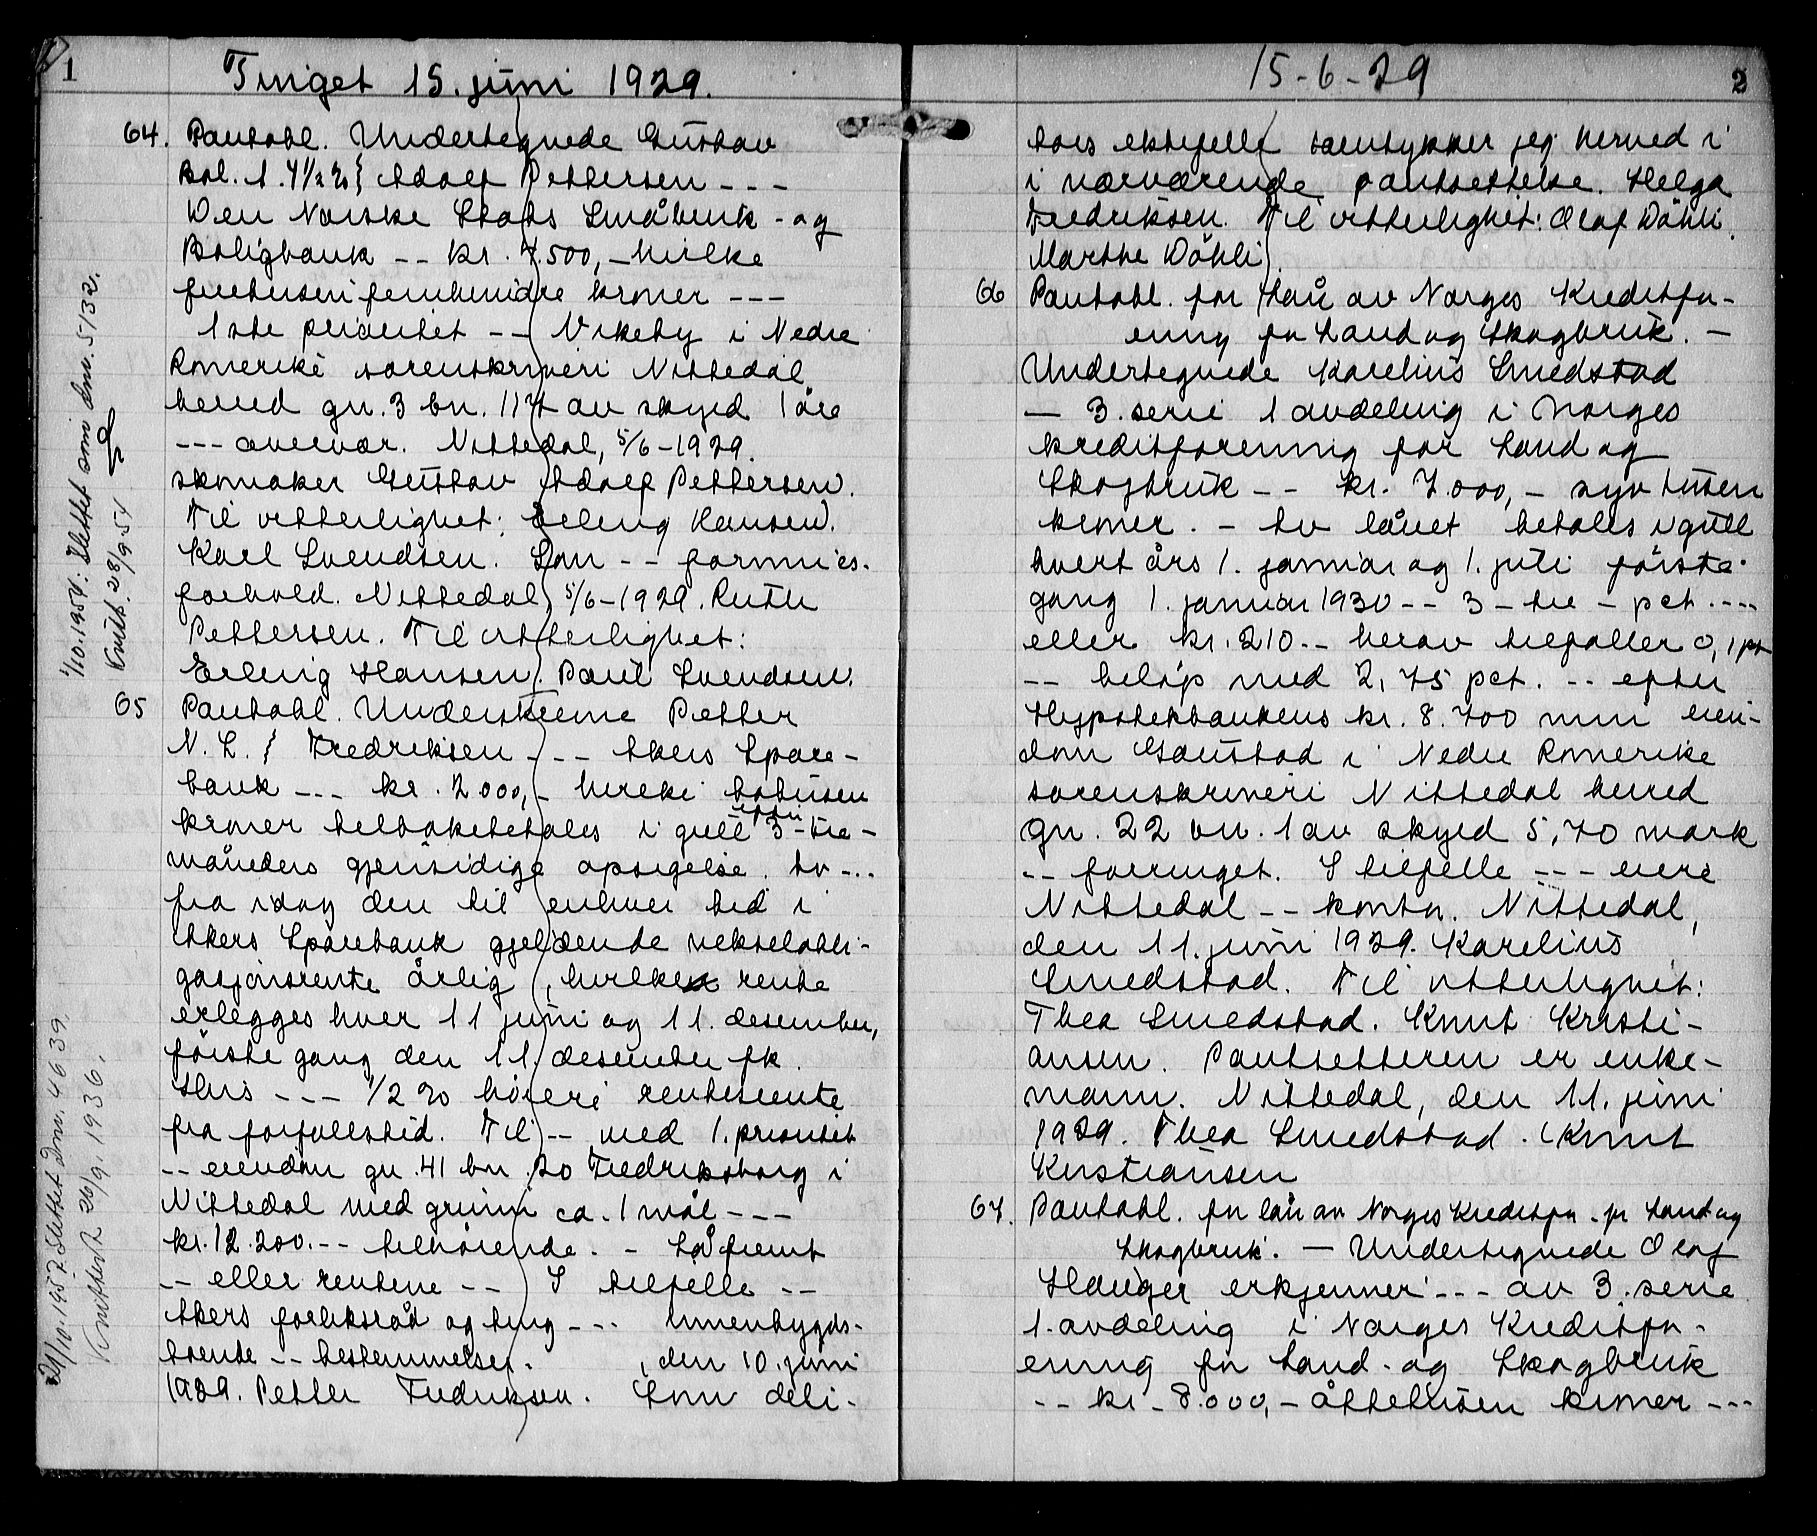 1
Tinget 15. juni 1929.
64. Pantobl. Undertegnede Gustav
Bol. 1. 4½ % } Adolf Pettersen - - -
Den Norske Stats Småbruk - og
Boligbank - - kr. 7.500, - hvilke
syvtusen femhundre kroner - - -
1ste prioritet - - Vikeby i Nedre
Romerike sorenskriveri Nittedal
herred gn. 3 bn. 114 av skyld 1 øre
- - - overvær. Nittedal, 5/6 - 1929.
skomaker Gustav Adolf Pettersen.
Til vitterlighet: Erling Hansen.
Karl Svendsen. Som - - formues-
forhold. Nittedal, 5/6 - 1929. Ruth
Pettersen. Til vitterlighet:
Erling Hansen. Paul Svendsen.
1/10.1954. Slettet som dnr. 5132.
Kvitt. 28/9.54
65 Pantobl. Underskrevne Petter
N. L. } Fredriksen - - - Akers Spare-
bank - - - kr. 2000, - hvilke totusen
kroner tilbakebetales i gull efter 3 - tre -
måneders gjensidige opsigelse. Av - - -
fra idag den til enhver tid i
Akers Sparebank gjeldende vekselobli-
gasjonsrente årlig, hvilken rente
erlegges hver 11 juni og 11. desember,
første gang den 11. desember fk.
Hvis - - - 1/2 % høiere rentesrente
fra forfallstid. Til - - med 1. prioritet
- - eiendom gn. 41 bn. 20 Fredriksborg i
Nittedal med grunn ca. 1 mål - - -
kr. 12.200. - - tilhørende. - Så fremt
- - eller rentene - - I tilfelle - -
Akers forliksråd og ting - - - Innenbygds-
boende - - bestemmelser. , den 10. juni
1929. Petter Fredriksen. Som debi-
21/10.1957 Slettet Dnr. 4639.
Kvittert 26/9. 1936.
15-6-29
2
tors ektefelle samtykker jeg herved i
i nærværende pantsettelse. Helga
Fredriksen. Til vitterlighet: Olaf Døhli.
Marthe Døhli.
66 Pantobl. for lån av Norges Kreditfor-
ening for Land og Skogbruk. -
Undertegnede Karelius Smedstad
- 3. serie 1 avdeling i Norges
kreditforening for Land og
Skogbruk - - kr. 7.000, - syv tusen
kroner. - Av lånet betales i gull
hvert års 1. januar og 1. juli første
gang 1. januar 1930 - - 3 - tre - pct. ....
eller kr. 210. - - herav tilfaller 0,1 pct
- - beløp med 2,75 pct. - - efter
Hypotekbankens kr. 8.700 min eien-
dom Gaustad i Nedre Romerike
sorenskriveri Nittedal herred
gn. 22 bn. 1 av skyld 5,70 mark
- - forringet. I tilfelle - - - eiere
Nittedal - - kontor. Nittedal,
den 11. juni 1929. Karelius
Smedstad. Til vitterlighet:
Thea Smedstad. Knut Kristi-
ansen. Pantsetteren er enke-
mann. Nittedal, den 11. juni
1929. Thea Smedstad. Knut
Kristiansen
67. Pantobl. for lån av Norges Kreditfor. for Land og
Skogbruk. - Undertegnede Olaf
Hauger erkjenner - - - av 3. serie
1. avdeling i Norges Kreditfor-
ening for Land - og Skogbruk
- - kr. 8.000, - åttetusen kroner - - -